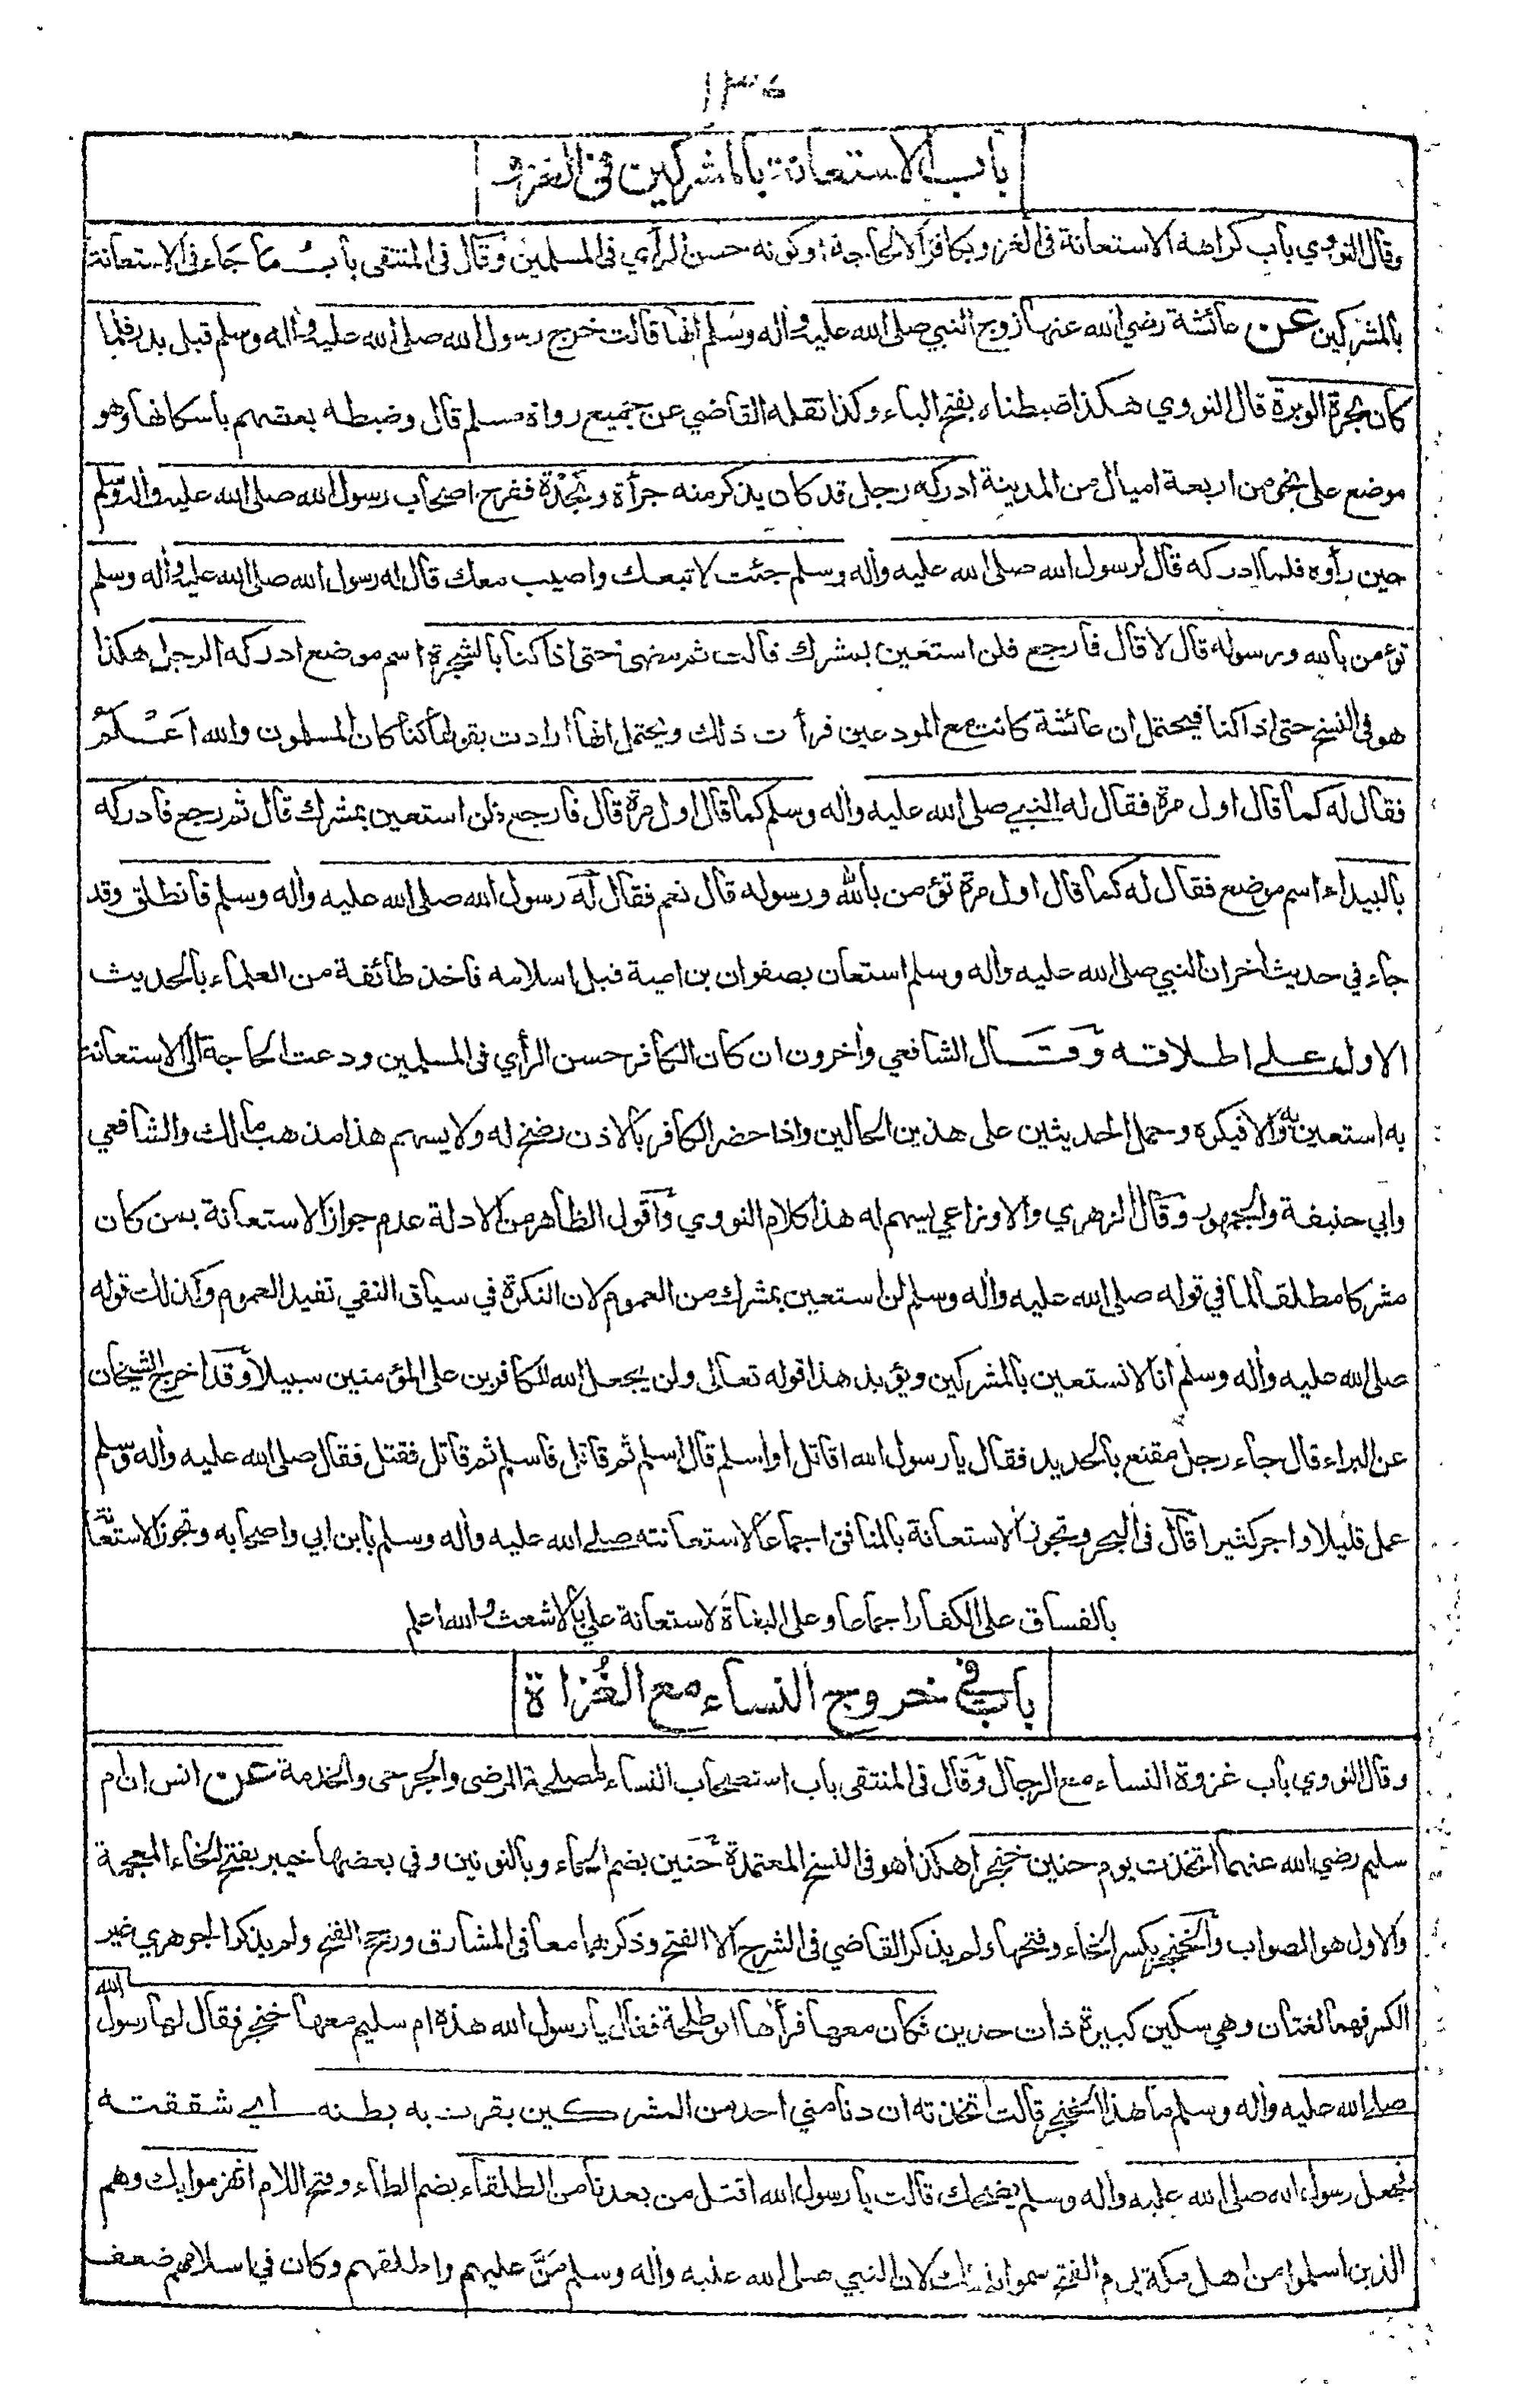 باب الاستعانة بالمشركين في الغزو
وقال النووي باب كراهة الاستعانة في الغزو بكافر الا لحاجة او كونه حسن الرأي في المسلمين وقال في المنتقى باب ما جاء في الاستعانة
بالمشركين عن عائشة رضي الله عنها زوج النبي صلى الله عليه واٰله وسلم انها قالت خرج رسول الله صلى الله عليه واٰله وسلم قبل بدر فلما
كان بحرة الوبرة قال النووي هكذا ضبطناه بفتح الباء وكذا نقله القاضي عن جميع رواة مسلم قال وضبطه بعضهم باسكانها وهو
موضع على نحو من اربعة اميال من المدينة ادركه رجل قد كان يذكر منه جرأة ونجدة ففرح اصحاب رسول الله صلى الله عليه واٰله وسلم
حين رأوه فلما ادركه قال لرسول الله صلى الله عليه واٰله وسلم جئت لاتبعك واصيب معك قال له رسول الله صلى الله عليه واٰله وسلم
تؤمن بالله ورسوله قال لا قال فارجع فلن استعين بمشرك قالت ثم مضى حتى اذا كنا بالشجرة اسم موضع ادركه الرجل هكذا
هو في النسخ حتى اذا كنا فيحتمل ان عائشة كانت مع المودعين فرأت ذلك ويحتمل انها ارادت بقولها كنا كان المسلمون والله اعلم
فقال له كما قال اول مرة فقال له النبي صلى الله عليه واٰله وسلم كما قال اول مرة قال فارجع فلن استعين بمشرك قال ثم رجع فادركه
بالبيداء اسم موضع فقال له كما قال اول مرة تؤمن بالله ورسوله قال نعم فقال له رسول الله صلى الله عليه واٰله وسلم فانطلق وقد
جاء في حديث اٰخر ان النبي صلى الله عليه واٰله وسلم استعان بصفوان بن امية قبل اسلامه فاخذ طائفة من العلماء بالحديث
الاول على اطلاقه وقال الشافعي واٰخرون ان كان الكافر حسن الرأي في المسلمين ودعت الحاجة الى الاستعانة
به استعين به والا فيكره وحمل الحديثين على هذين الحالين واذا حضر الكافر بالاذن رضخ له ولا يسهم هذا مذهب مالك والشافعي
وابي حنيفة والجمهور وقال الزهري والاوزاعي يسهم له هذا كلام النووي واقول الظاهر من الادلة عدم جواز الاستعانة بمن كان
مشركا مطلقا لما في قوله صلى الله عليه واٰله وسلم لن استعين بمشرك من العموم لان النكرة في سياق النفي تفيد العموم وكذلك قوله
صلى الله عليه واٰله وسلم انا لا نستعين بالمشركين ويؤيد هذا قوله تعالى ولن يجعل الله للكافرين على المؤمنين سبيلا وقد اخرج الشيخان
عن البراء قال جاء رجل مقنع بالحديد فقال يا رسول الله اقاتل او اسلم قال اسلم ثم قاتل فاسلم ثم قاتل فقتل فقال صلى الله عليه واٰله وسلم
عمل قليلا واجر كثيرا قال في البحر وتجوز الاستعانة بالمنافق اجماعا لاستعانته صلى الله عليه واٰله وسلم بابن ابي واصحابه وتجوز الاستعانة
بالفساق على الكفار اجماعا وعلى البغاة لاستعانة علي بالاشعث والله اعلم
باب في خروج النساء مع الغُزاة
وقال النووي باب غزوة النساء مع الرجال وقال في المنتقى باب استصحاب النساء لمصلحة المرضى والجرحى والخدمة عن انس ان ام
سليم رضي الله عنهما اتخذت يوم حنين خنجرا هكذا هو في النسخ المعتمدة حنين بضم الحاء وبالنونين وفي بعضها خيبر بفتح الخاء المعجمة
والاول هو الصواب والخنجر بكسر الخاء وفتحها ولم يذكر القاضي في الشرح الا الفتح وذكرهما معا في المشارق ورجح الفتح ولم يذكر الجوهري غير
الكسر فهما لغتان وهي سكين كبيرة ذات حدين فكان معها فراٰها ابو طلحة فقال يا رسول الله هذه ام سليم معها خنجر فقال لها رسول الله
صلى الله عليه واٰله وسلم ما هذا الخنجر قالت اتخذته ان دنا مني احد من المشركين بقرت به بطنه اي شققته
فجعل رسول الله صلى الله عليه واٰله وسلم يضحك قالت يا رسول الله اقتل من بعدنا من الطلقاء بضم الطاء وفتح اللام انهزموا بك وهم
الذين اسلموا من اهل مكة يوم الفتح سموا بذلك لان النبي صلى الله عليه واٰله وسلم مَنَّ عليهم واطلقهم وكان في اسلامهم ضعف